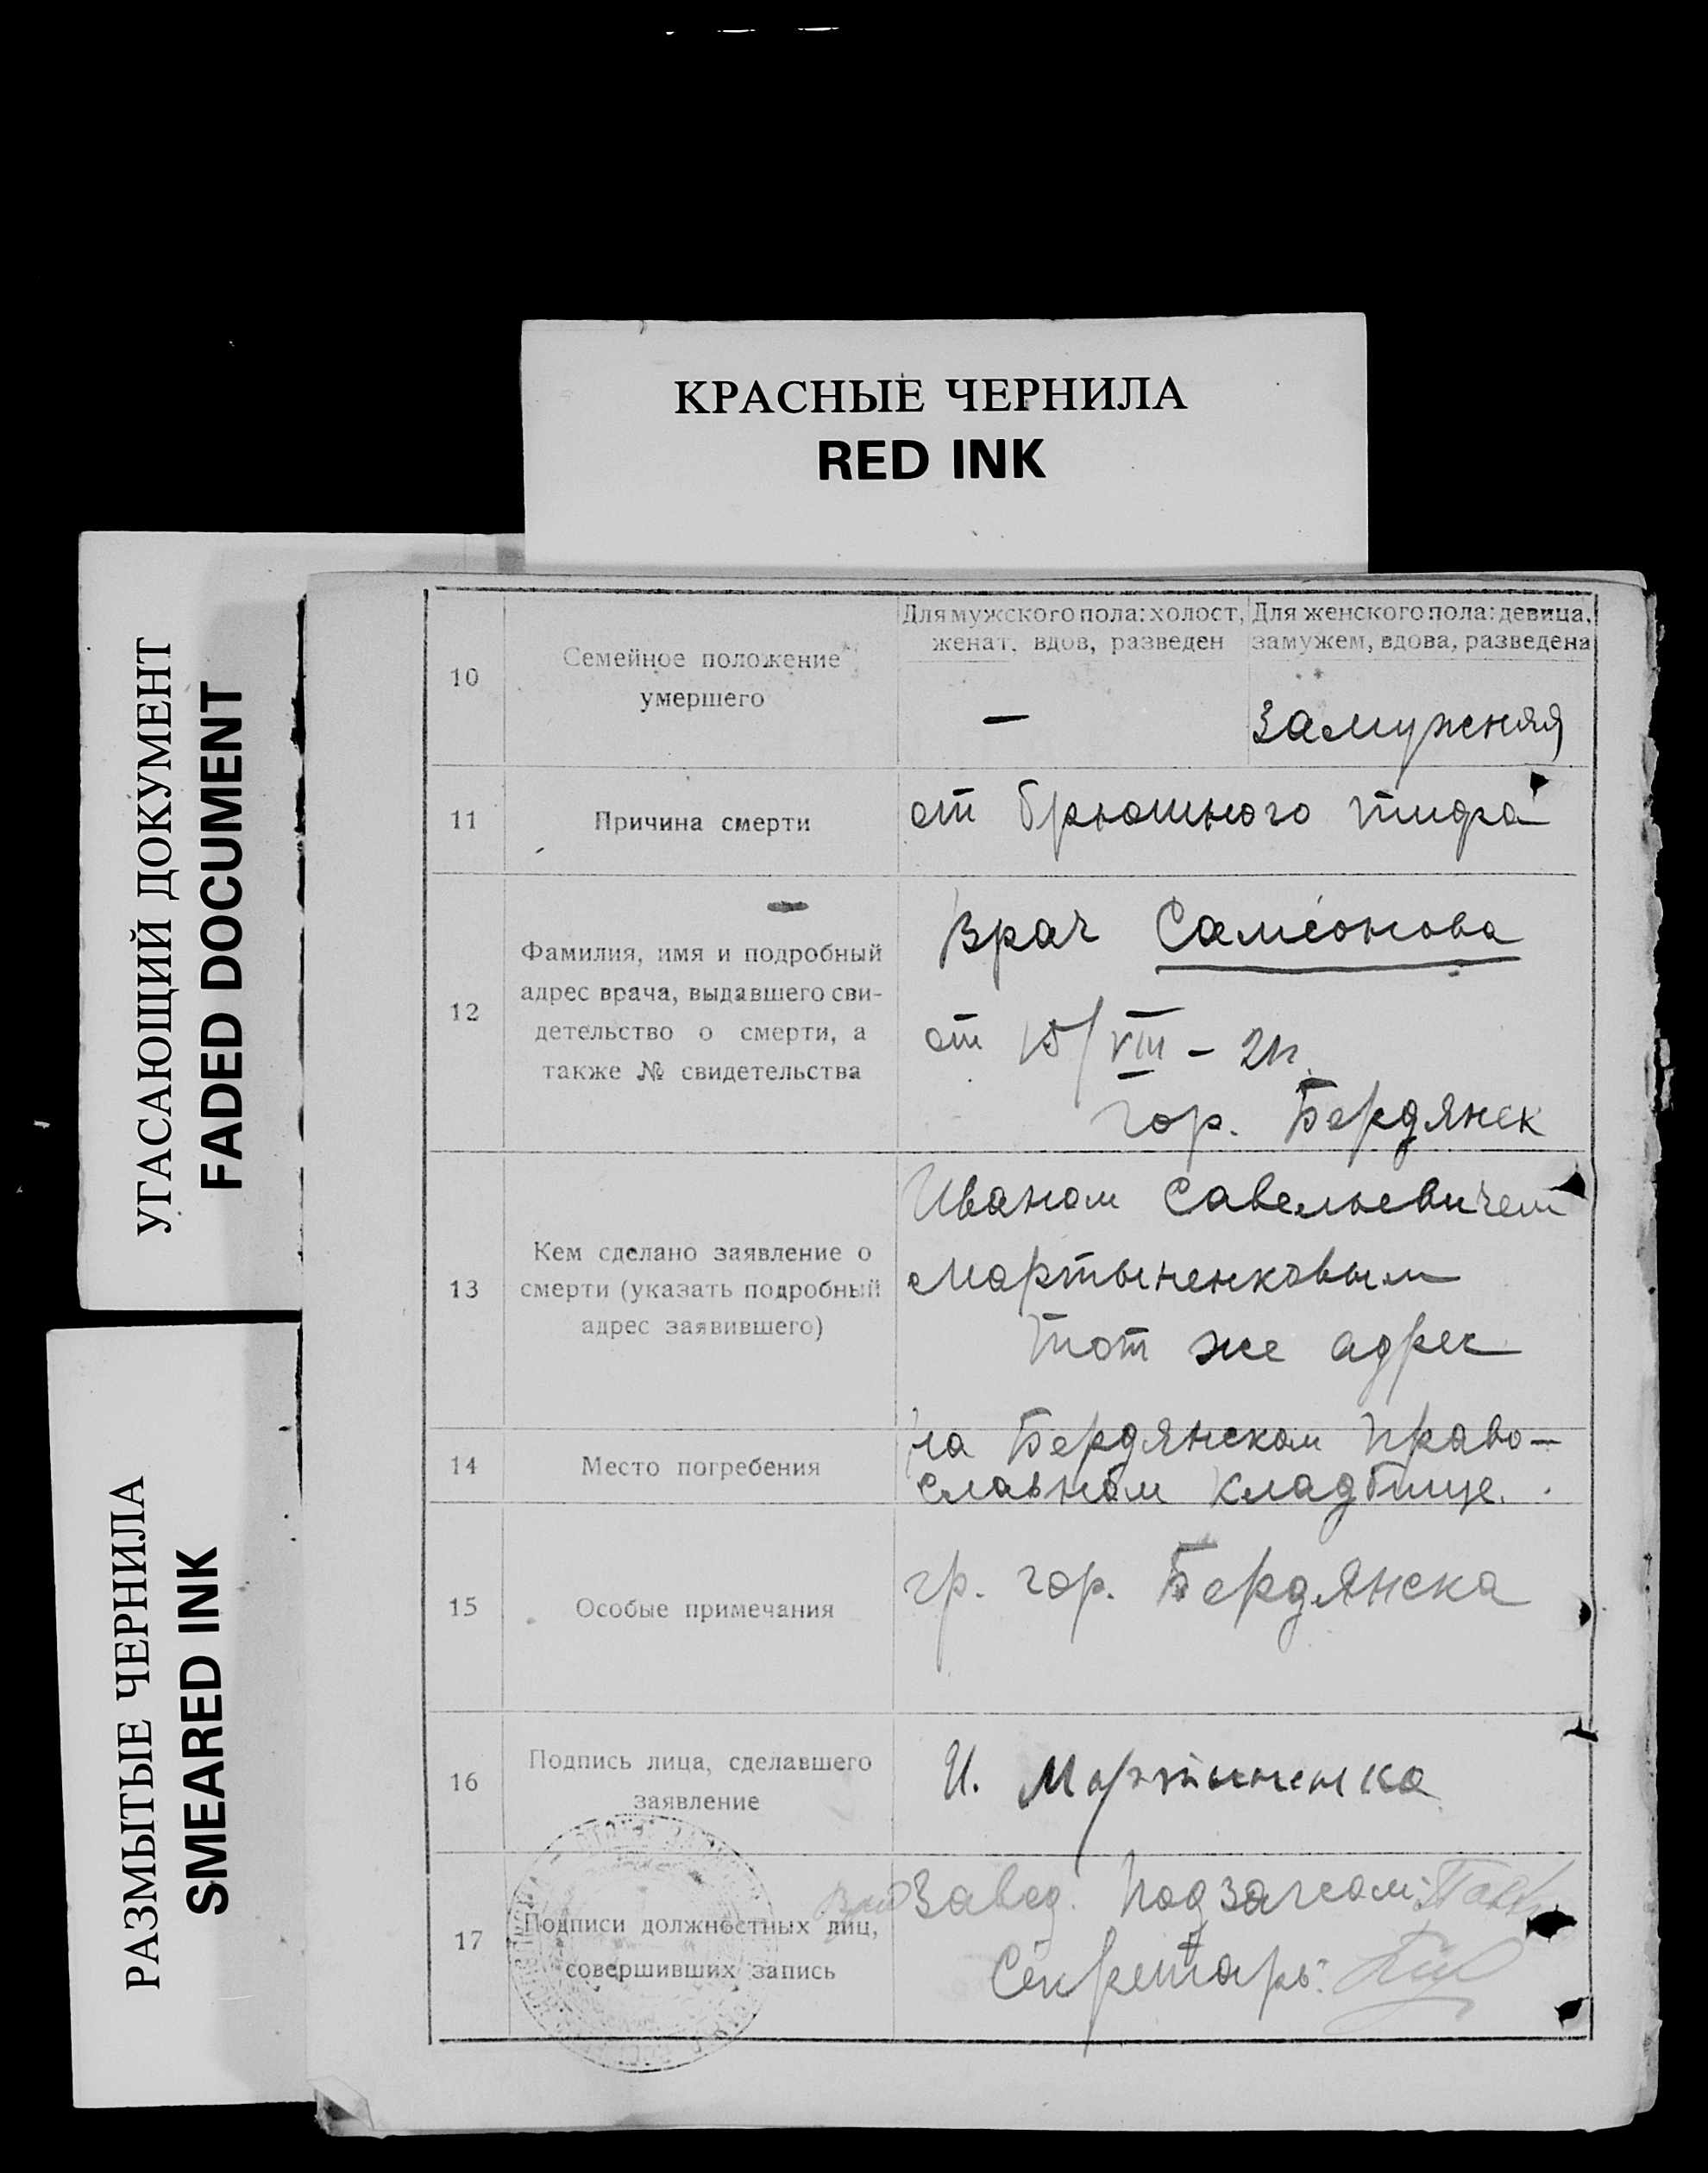 КРАСНЫЕ ЧЕРНИЛА
RED INK
УГАСАЮЩИЙ ДОКУМЕНТ
FADED DOCUMENT
РАЗМЫТЫЕ ЧЕРНИЛА
SMEARED INK
10
Семейное положение
умершего
Для мужского пола: холост,
женат, вдов, разведен
—
Для женского пола: девица,
замужем, вдова, разведена
Замужняя
11
Причина смерти
от брюшного тифа
12
Фамилия, имя и подробный
адрес врача, выдавшего сви-
детельство о смерти, а
также № свидетельства
Врач Самсонова
от 15/VIII –
гор. Бердянск
13
Кем сделано заявление о
смерти (указать подробный
адрес заявившего)
Иваном Савельевичем
Мартыненковым
тот же адрес
14
Место погребения
на Бердянском право–
славном кладбище.
15
Особые примечания
гр. гор. Бердянска
16
Подпись лица, сделавшего
заявление
И. Мартыненко
17
Подписи должностных лиц,
совершивших запись
Завед. Подзагсом:
Секретарь: